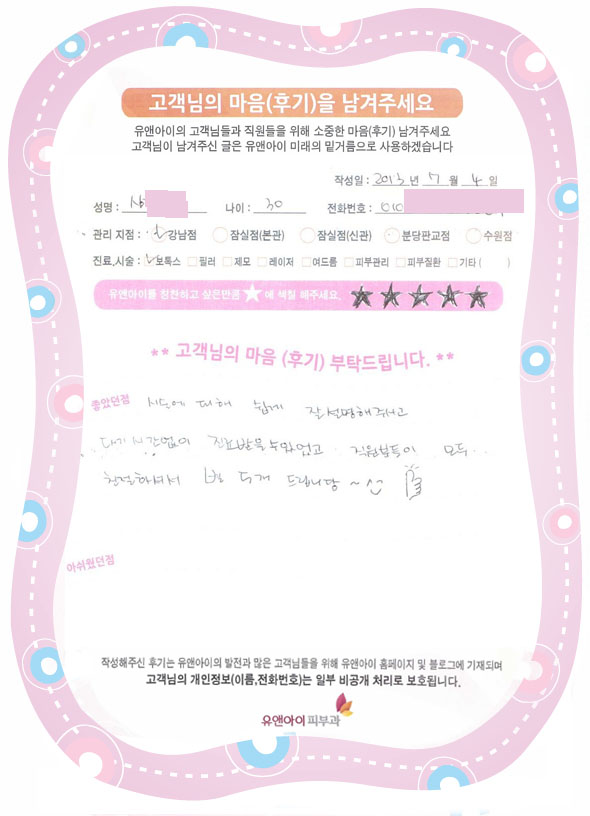 고객님의 마음(후기)을 남겨주세요
유앤아이의 고객님들과 직원들을 위해 소중한 마음(후기) 남겨주세요
고객님이 남겨주신 글은 유앤아이 미래의 밑거름으로 사용하겠습니다
작성일 : 2013 년 7 월 4 일
성명 : 나이 : 30 전화번호 : 010
관리 지점 : 강남점 잠실점(본관) 잠실점(신관) 분당판교점 수원점
진료,시술 : 보톡스 필러 제모 레이저 여드름 피부관리 피부질환 기타 ( )
유앤아이를 칭찬하고 싶은만큼 ★에 색칠 해주세요. ★★★★★
** 고객님의 마음 (후기) 부탁드립니다. **
좋았던점 시술에 대해 쉽게 잘 설명해주시고
대기시간없이 진료받을수있었고 직원분들이 모두..
친절하셔서 별 다섯개 드립니당~
아쉬웠던점
작성해주신 후기는 유앤아이의 발전과 많은 고객님들을 위해 유앤아이 홈페이지 및 블로그에 기재되며
고객님의 개인정보(이름,전화번호)는 일부 비공개 처리로 보호됩니다.
유앤아이피부과